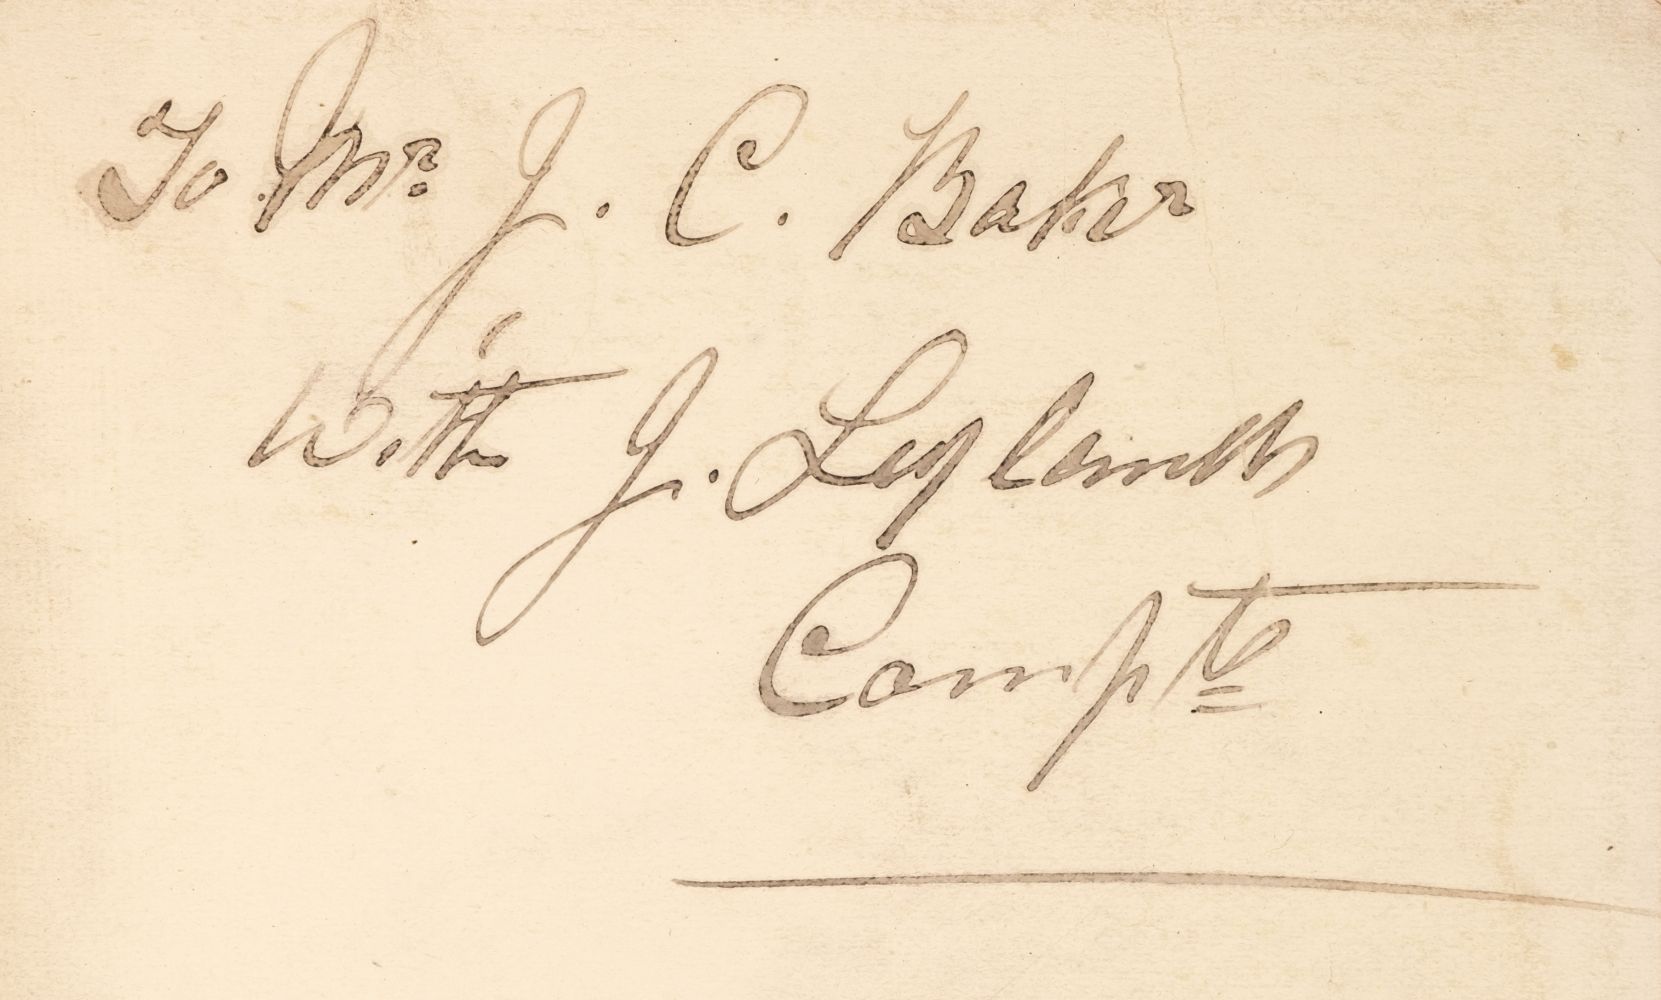 To Mr. J. C. Baker
With J. Leylamth
Compts